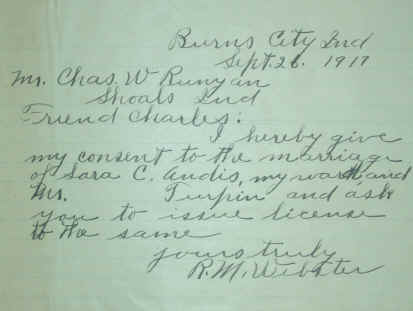 Burns City Ind
Sept. 26. 1917
Mr. Chas. W Runyan
Shoals Ind
Friend Charles:
I hereby give
my consent to the marriage
of Sara C. Audis, my ward and
Mr. Turpin and ask
you to issue license
to the same
yours truly
R. M. Webster